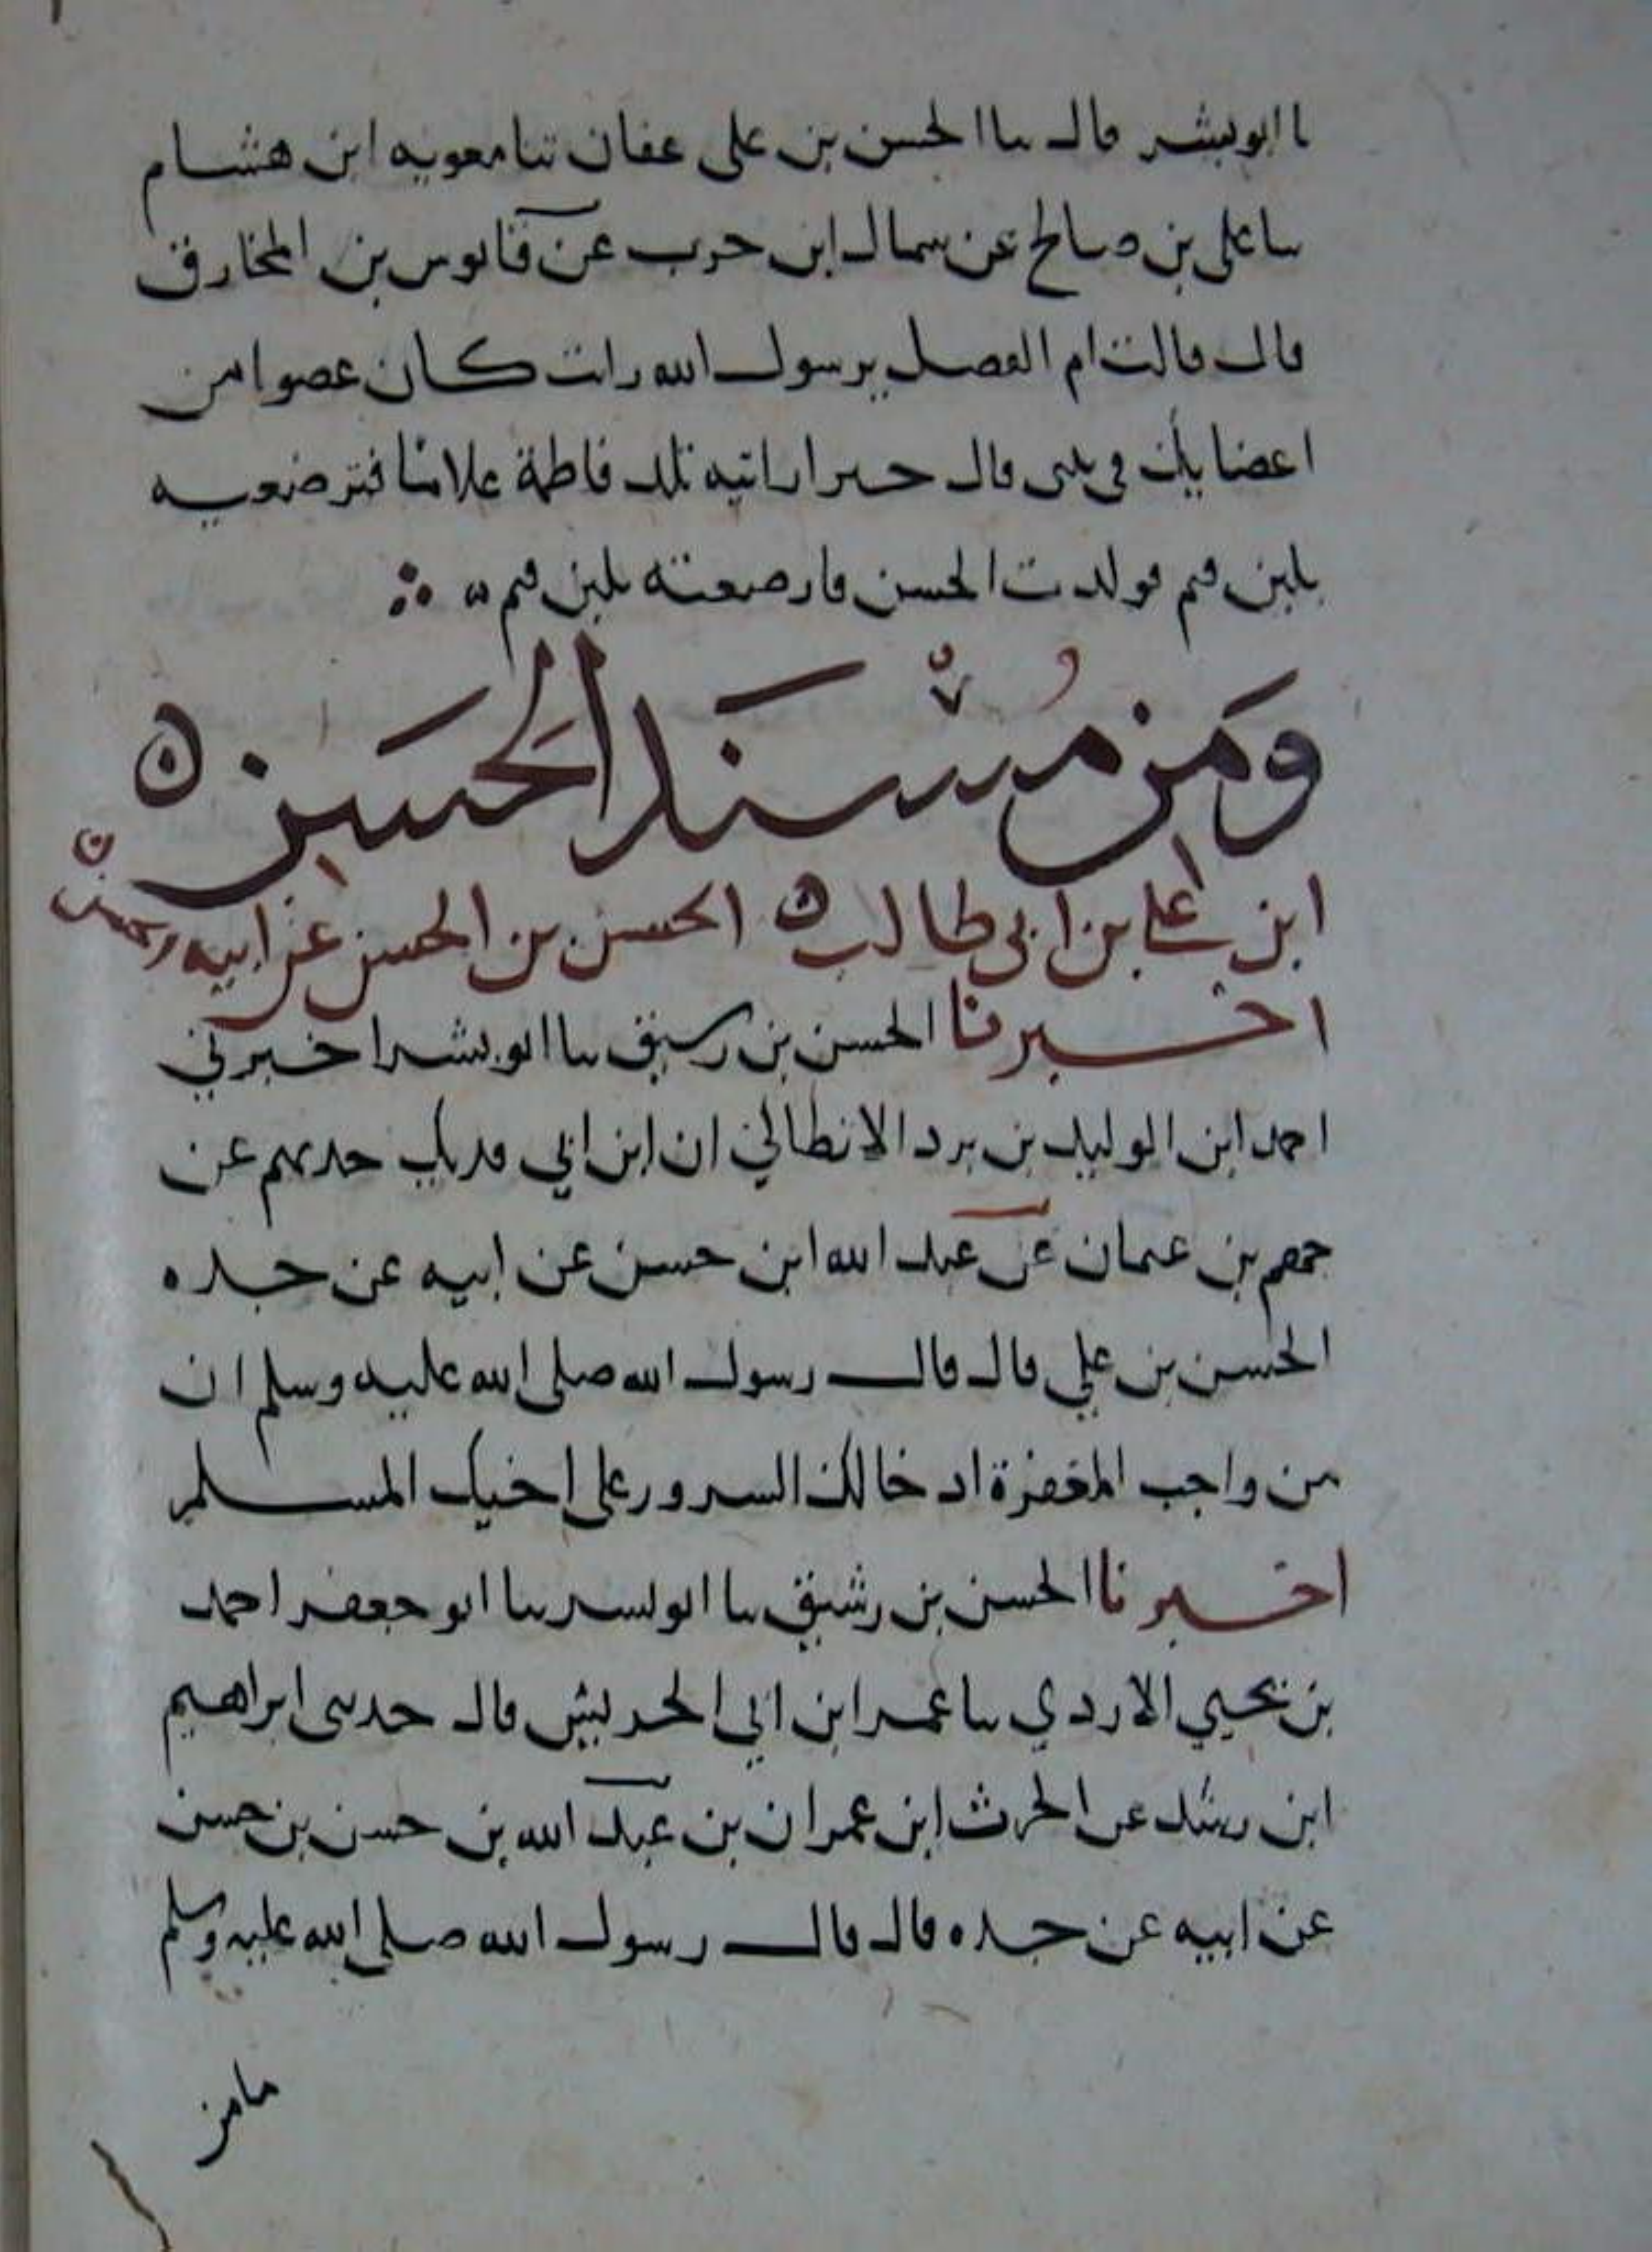 نا ابو بشر قال ثنا الحسن بن على عفان ثنا معويه ابن هشام
ثنا على بن صالح عن سماك ابن حرب عن قابوس بن المخارق
قال قالت ام الفضل يرسول الله رات كان عضوا من
اعضايك في بيتى قال خيرا راتيه تلد فاطمة غلاما فترضعيه
بلبن قثم فولدت الحسن فارضعته بلبن قثم
وَمَن مُسْنَد الحَسَن ه
ابن على بن ابي طالب ه الحسن بن الحسن عن ابيه
اخبرنا الحسن بن رسيق ثنا ابو بشر اخبرني
احمد ابن الوليد بن برد الانطالي ان ابن ابي فديك حدثهم عن
جهم بن عثمان عن عبد الله ابن حسن عن ابيه عن جده
الحسن بن علي قال قال رسول الله صلى الله عليه وسلم ان
من واجب المغفرة ادخالك السرور على اخيك المسلم
اخبرنا الحسن بن رشيق ثنا ابو بسر ثنا ابو جعفر احمد
بن يحيي الاردي ثنا عمر ابن ابي الحريش قال حدثنى ابراهيم
ابن رشد عن الحرث ابن عمران بن عبد الله بن حسن بن حسن
عن ابيه عن جده قال قال رسول الله صلى الله عليه وسلم
مامن